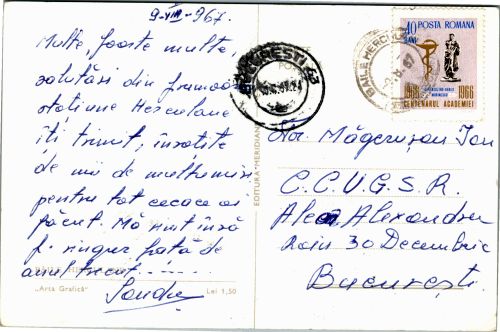 9-VIII-967.
Multe, foarte multe,
salutări din frumoasa
stațiune Herculane
îți trimit, însoțite
de mii de mulțumiri
pentru tot ceeace ai
făcut. Mă simt însă
f. singur față de
anul trecut.
Sandu
"Arta Grafică" Lei 1,50
EDITURA "MERIDIANE"
BUCUREȘTI
BAILE HERCULANE
40 BANI POSTA ROMANA
1866 1966
CENTENARUL ACADEMIEI
Măgerușan Ion
C.C.U.G.S.R.
Alexandru
Raion 30 Decembrie
București